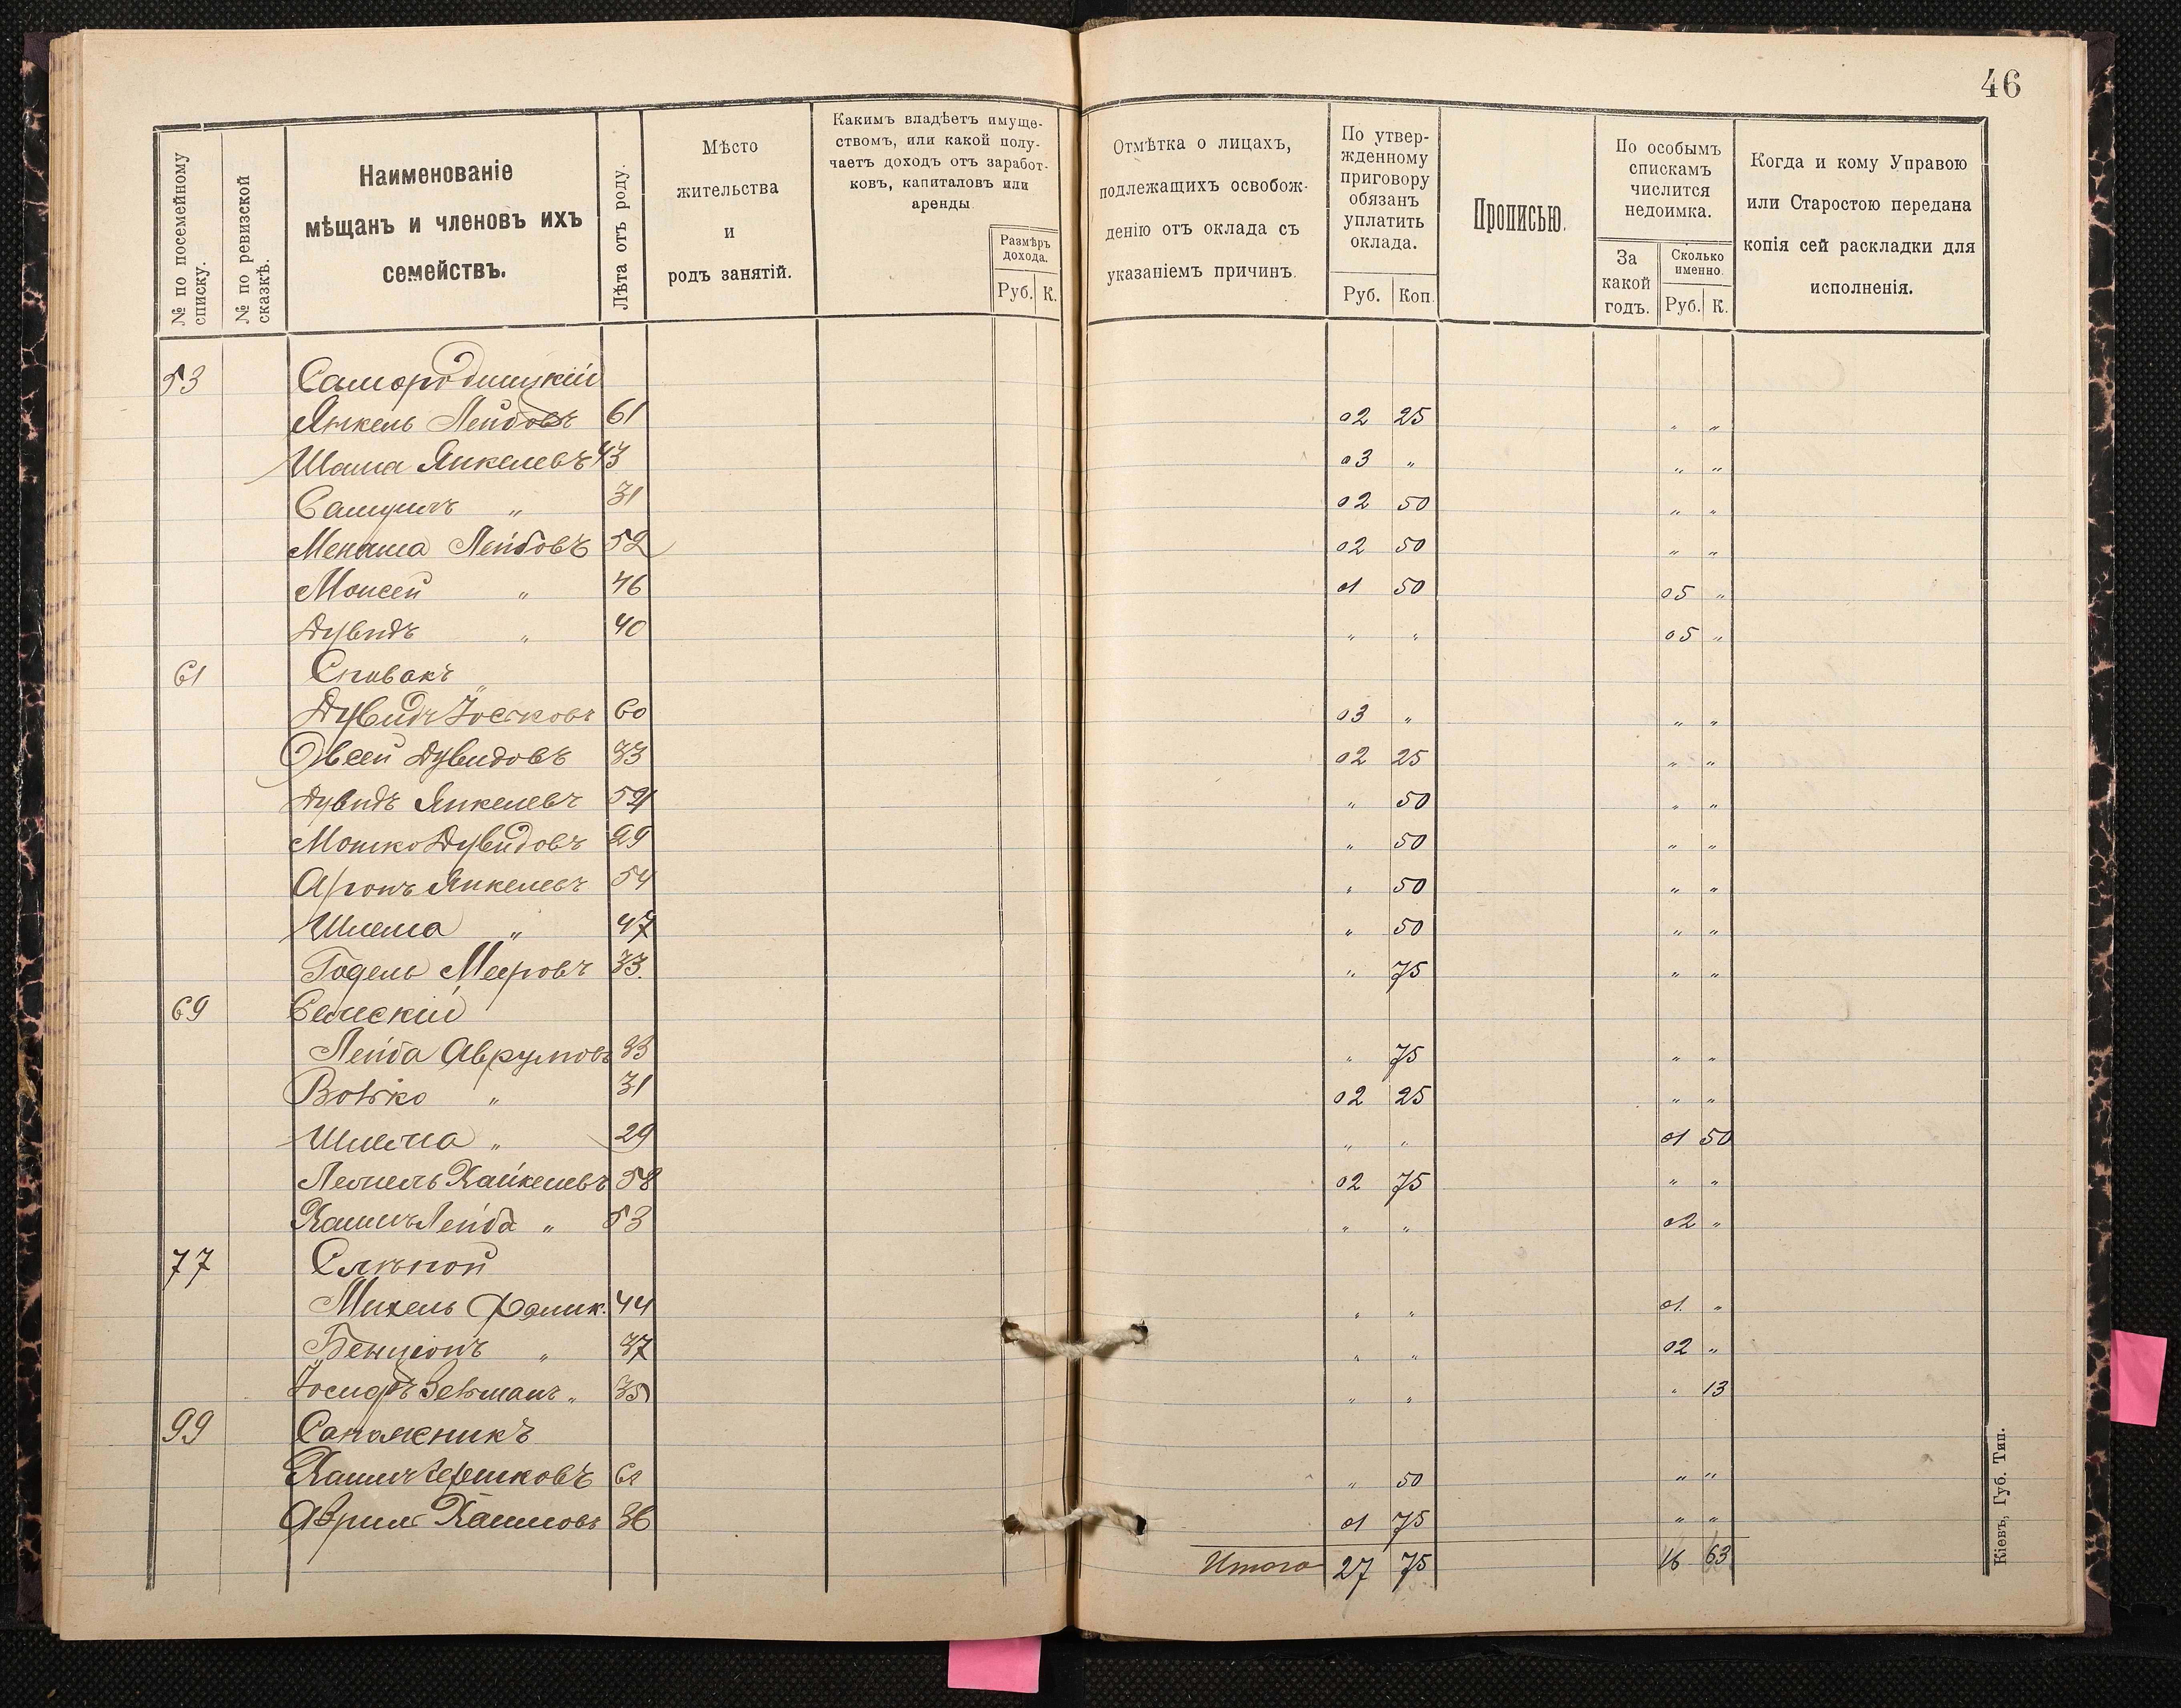 46
№ по посемейному списку.
№ по ревизской сказкѣ.
Наименованіе
мѣщанъ и членовъ ихъ
семействъ.
Лѣта отъ роду.
Мѣсто
жительства
и
родъ занятій.
Какимъ владѣетъ имуще-
ствомъ, или какой полу-
чаетъ доходъ отъ заработ-
ковъ, капиталовъ или
аренды.
Размѣръ
дохода.
Руб. К.
Отмѣтка о лицахъ,
подлежащихъ освобож-
денію отъ оклада съ
указаніемъ причинъ.
По утвер-
жденному
приговору
обязанъ
уплатить
оклада.
Руб. Коп.
Прописью.
По особымъ
спискамъ
числится
недоимка.
За
какой
годъ.
Сколько
именно.
Руб. К.
Когда и кому Управою
или Старостою передана
копія сей раскладки для
исполненія.
53 Самородницкій
Янкель Лейбовъ 61 02 25 „ „
Шама Янкелевъ 43 03 „ „ „
Самуилъ „ 31 02 50 „ „
Менаша Лейбовъ 52 02 50 „ „
Моисей „ 46 01 50 05 „
Дувидъ „ 40 „ „ 05 „
61 Спивакъ
Дувидъ Іоськовъ 60 03 „ „ „
Овсей Дувидовъ 33 02 25 „ „
Дувидъ Янкелевъ „ 50 „ „
Мошко Дувидовъ 29 „ 50 „ „
Аронъ Янкелевъ 54 „ 50 „ „
Шлема „ 47 „ 50 „ „
Годель Мееровъ 33. „ 75 „ „
69
Лейба Аврумовъ 33 „ 75 „ „
Волько „ 31 02 25 „ „
Шлема „ 29 „ „ 01 50
Хайкелевъ 58 02 75 „ „
Хаимъ Лейба „ 53 „ „ 02 „
77 Слѣпой
Михель 44 „ „ 01 „
Бенціонъ „ 37 „ „ 02 „
Зельманъ „ 35 „ „ „ 13
99 Сапожникъ
Хаимъ Гершковъ „ 50 „ „
Аврумъ Хаимовъ 36 01 75 „ „
Итого 27 75 16 63
Кіевъ, Губ. Тип.